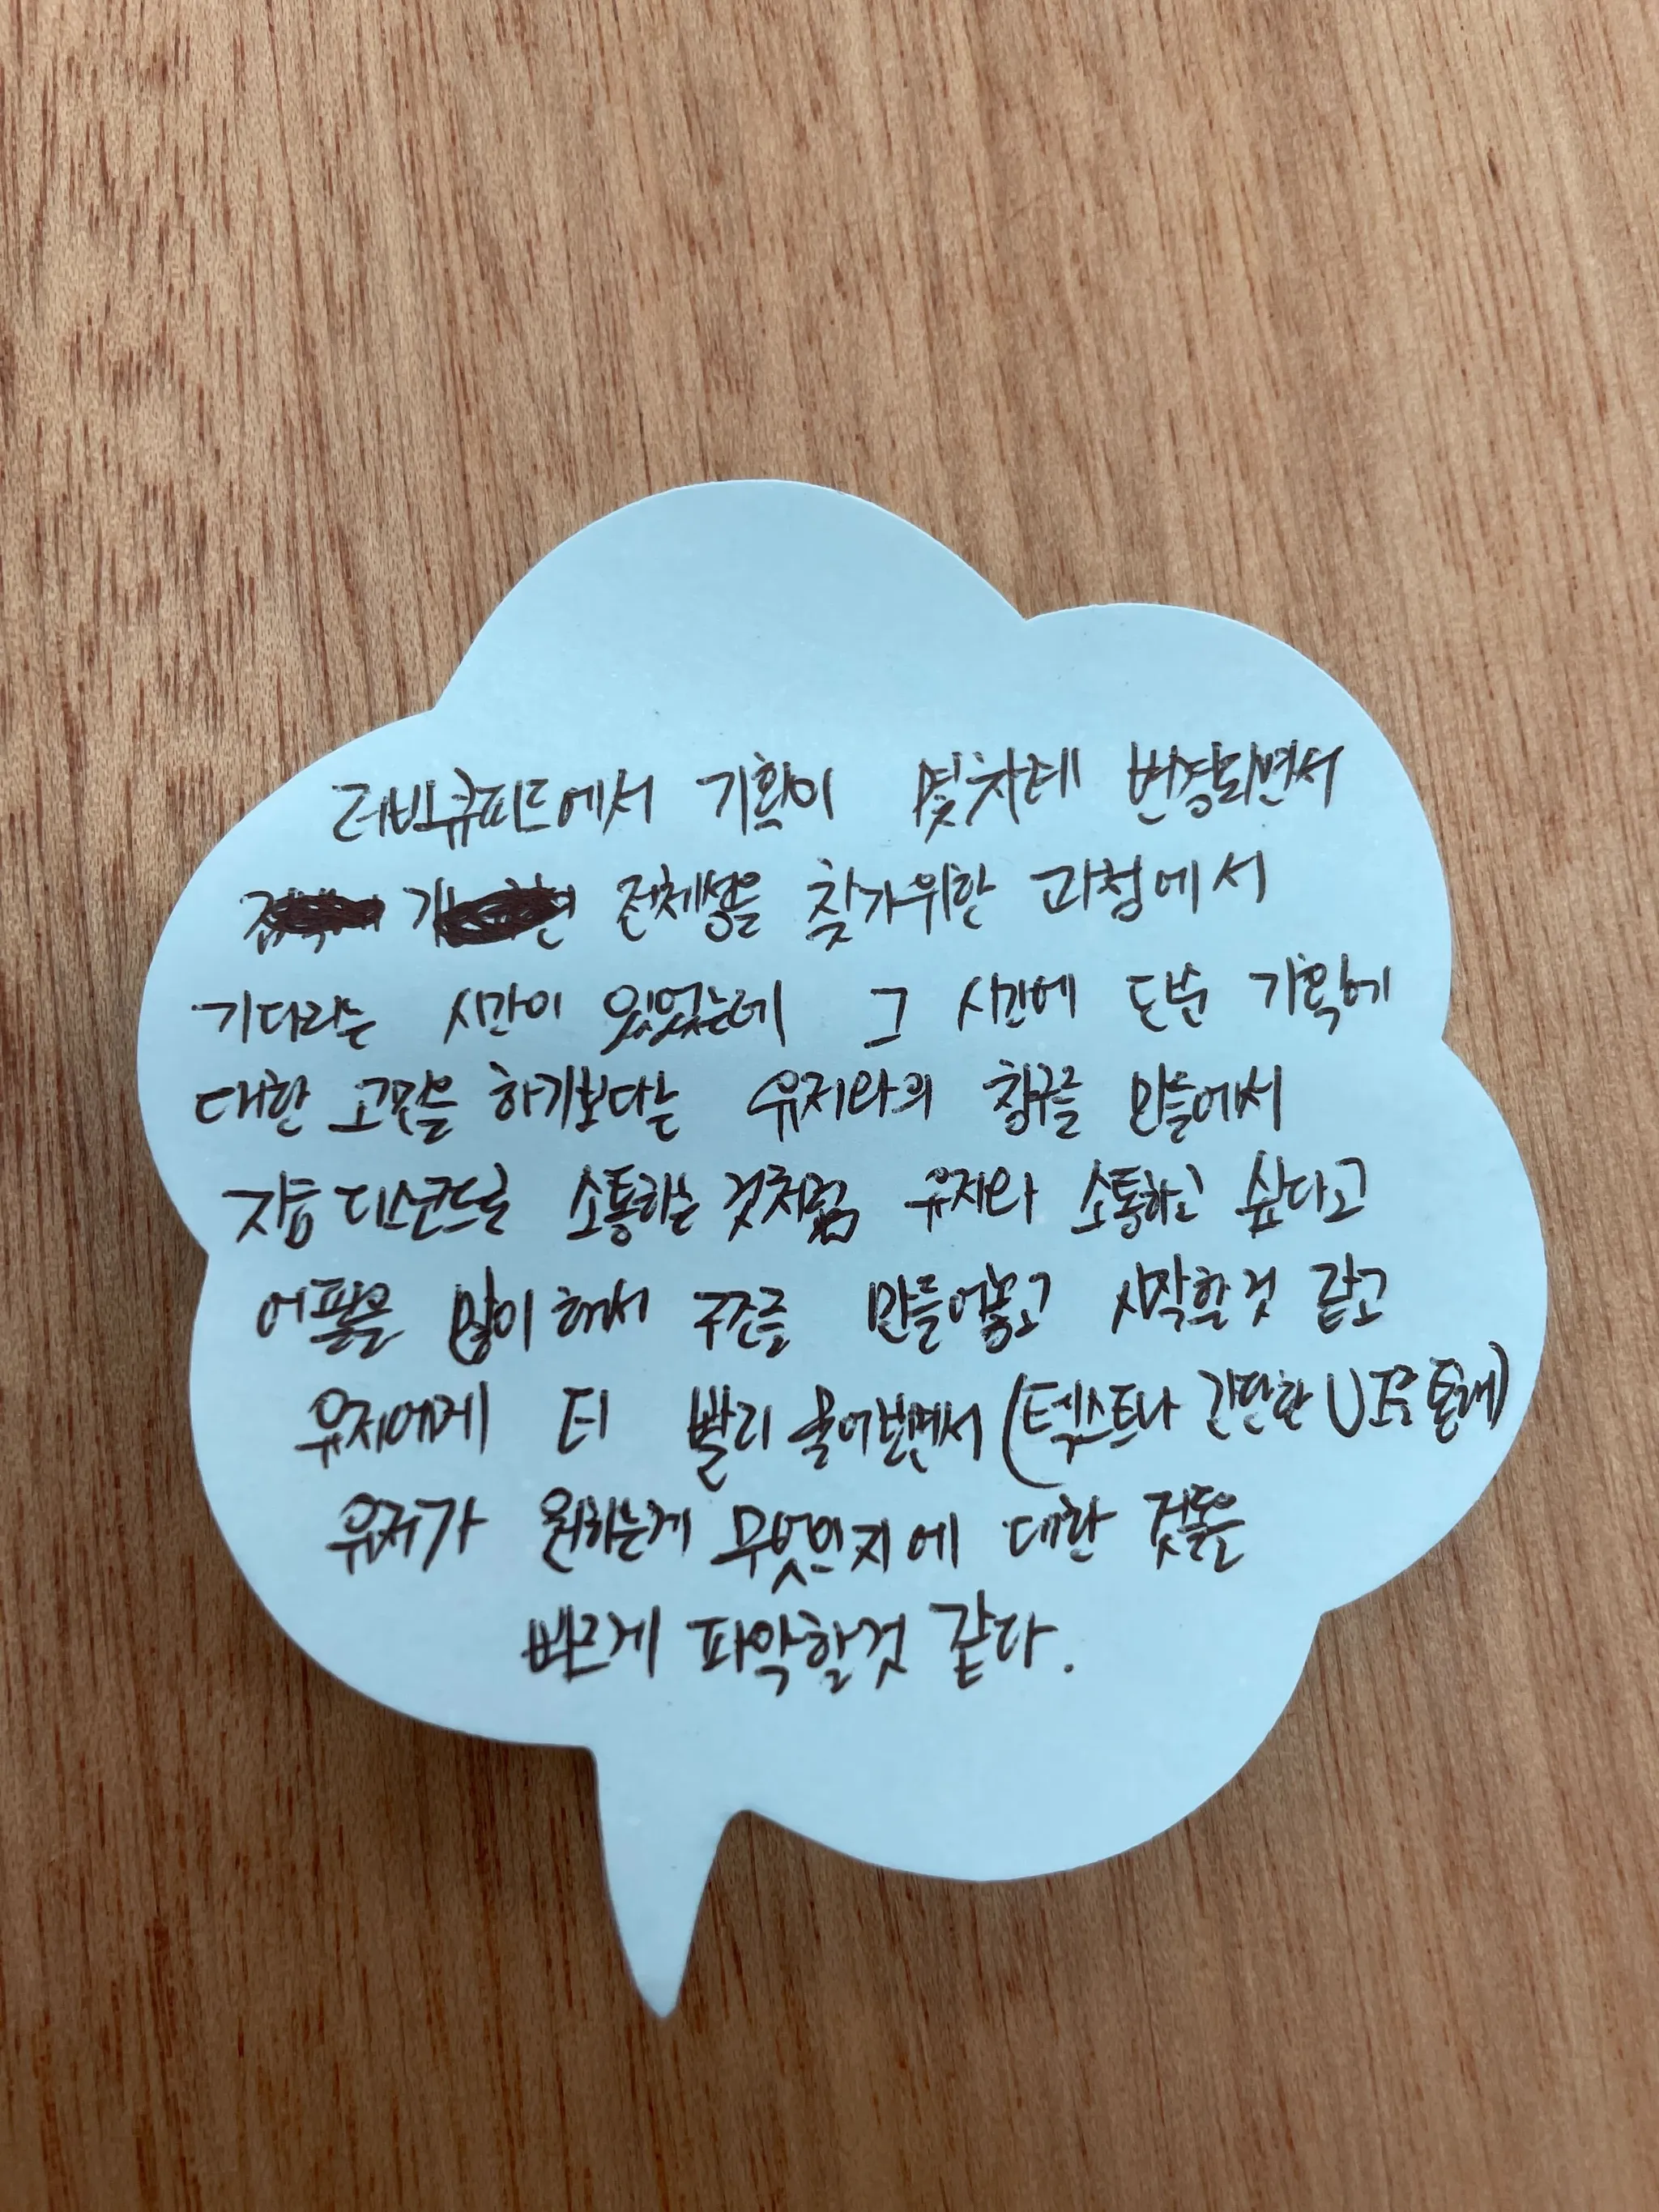 러브큐피드에서 기획이 몇차례 변경되면서
정체성을 찾기위한 과정에서
기다리는 시간이 있었는데 그 시간에 단순 기획에
대한 고민을 하기보다는 유저와의 창구를 만들어서
지금 디스코드로 소통하는 것처럼 유저와 소통하고 싶다고
어필을 많이 해서 구조를 만들어놓고 시작할것 같고
유저에게 더 빨리 물어보면서 (텍스트나 간단한 UI를 통해)
유저가 원하는게 무엇인지에 대한 것들을
빠르게 파악할것 같다.